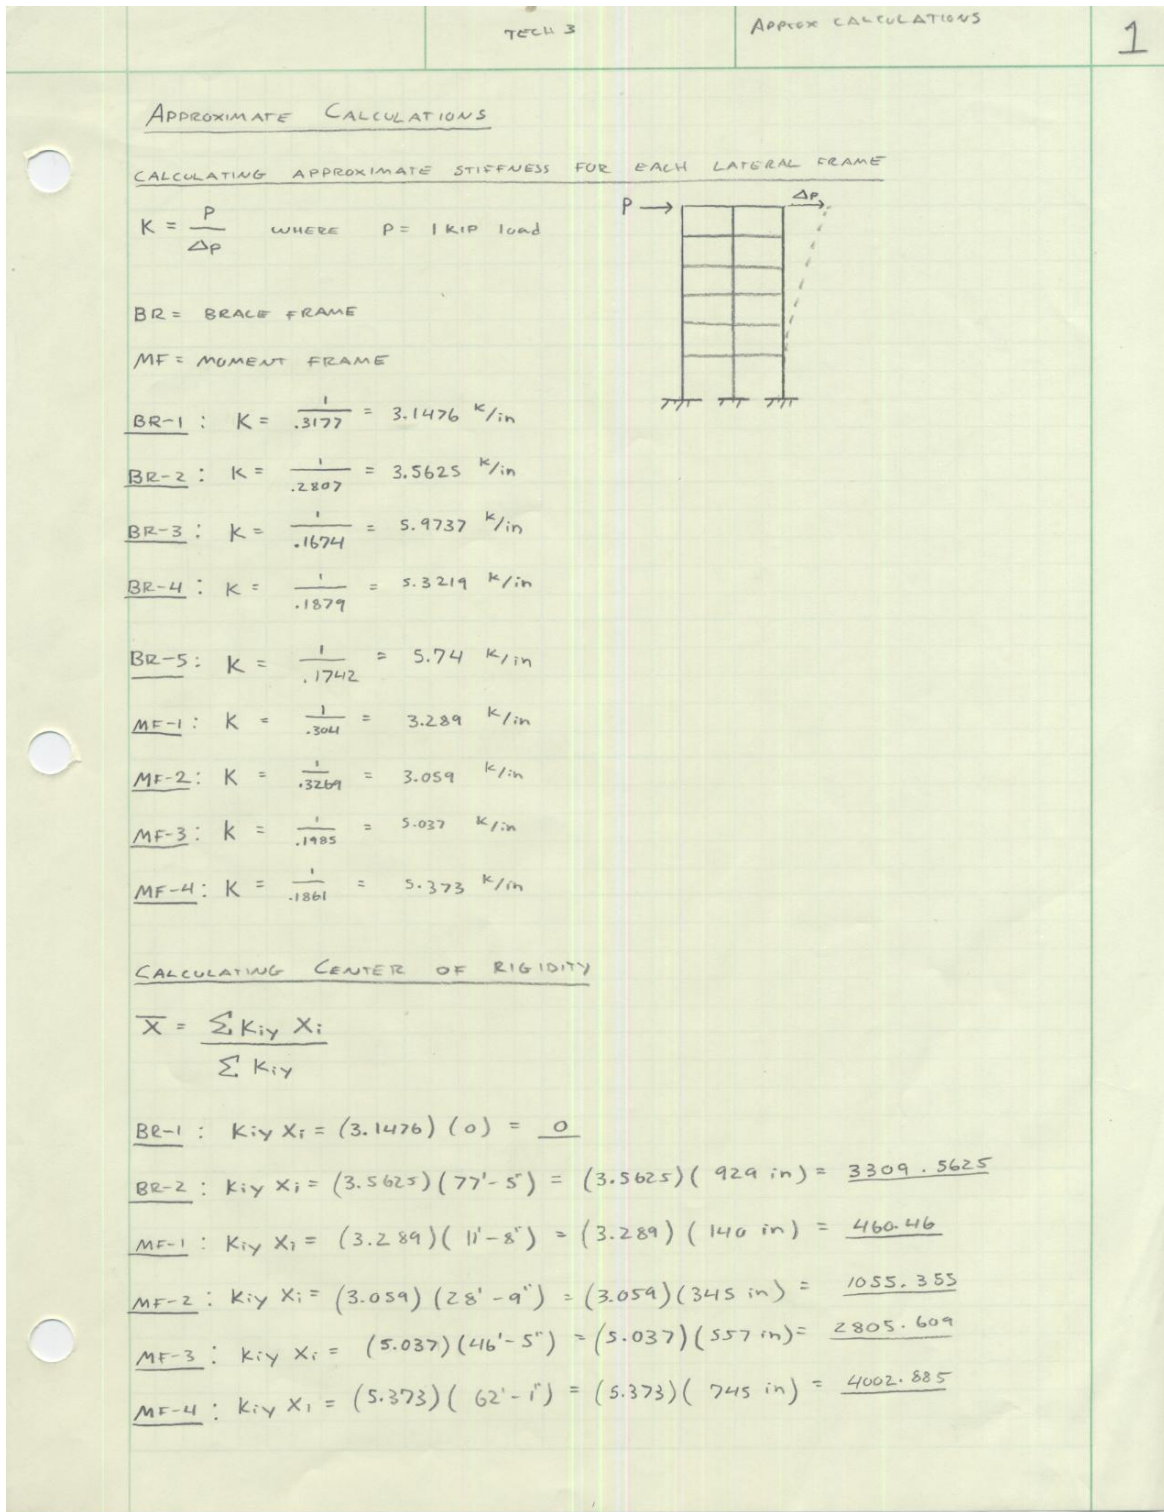 TECH 3
APPROX CALCULATIONS
1
APPROXIMATE CALCULATIONS
CALCULATING APPROXIMATE STIFFNESS FOR EACH LATERAL FRAME
K = P/ΔP WHERE P = 1 KIP load
P → ΔP
BR = BRACE FRAME
MF = MOMENT FRAME
BR-1 : K = 1/.3177 = 3.1476 K/in
BR-2 : K = 1/.2807 = 3.5625 K/in
BR-3 : K = 1/.1674 = 5.9737 K/in
BR-4 : K = 1/.1879 = 5.3219 K/in
BR-5 : K = 1/.1742 = 5.74 K/in
MF-1 : K = 1/.304 = 3.289 K/in
MF-2 : K = 1/.3269 = 3.059 K/in
MF-3 : K = 1/.1985 = 5.037 K/in
MF-4 : K = 1/.1861 = 5.373 K/in
CALCULATING CENTER OF RIGIDITY
X̅ = Σ Kiy Xi / Σ Kiy
BR-1 : Kiy Xi = (3.1476) (0) = 0
BR-2 : Kiy Xi = (3.5625) (77'-5") = (3.5625) (929 in) = 3309.5625
MF-1 : Kiy Xi = (3.289) (11'-8") = (3.289) (140 in) = 460.46
MF-2 : Kiy Xi = (3.059) (28'-9") = (3.059) (345 in) = 1055.355
MF-3 : Kiy Xi = (5.037) (46'-5") = (5.037) (557 in) = 2805.609
MF-4 : Kiy Xi = (5.373) (62'-1") = (5.373) (745 in) = 4002.885